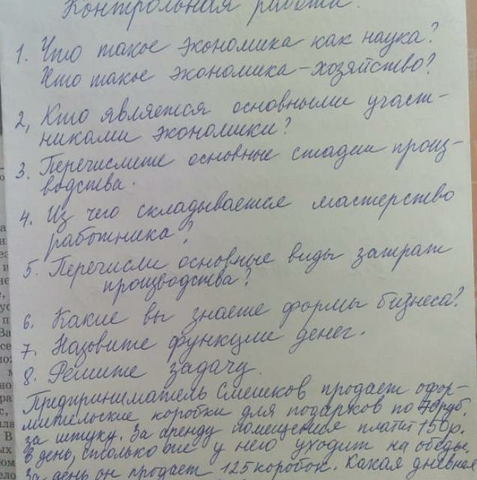 Контрольная работа.
1. Что такое экономика как наука?
Что такое экономика-хозяйство?
2, Кто является основными участ-
никами экономики?
3. Перечислите основные стадии произ-
водства.
4. Из чего складывается мастерство
работника?
5. Перечисли основные виды затрат
производства?
6. Какие вы знаете формы бизнеса?
7. Назовите функции денег.
8. Решите задачу.
Предприниматель Смешков продает офор-
мительские коробки для подарков по руб.
за штуку. За аренду помещения платит 150р.
в день, столько же у него уходит на обеды.
За день он продает 125 коробок. Какая дневная